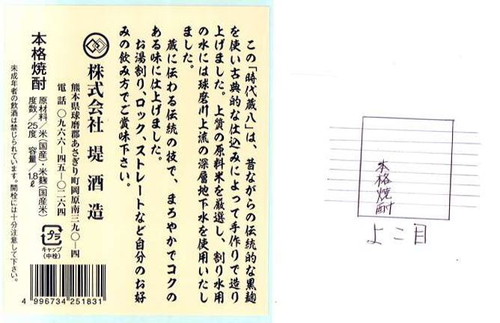 この「時代蔵八」は、昔ながらの伝統的な黒麹
を使い古典的な仕込みによって手作りで造り
上げました。上質の原料米を厳選し、割り水用
の水には球磨川上流の深層地下水を使用いたし
ました。
蔵に伝わる伝統の技で、まろやかでコクの
ある味に仕上げました。
お湯割り、ロック、ストレートなど自分のお好
みの飲み方でご賞味下さい。
株式会社 堤酒造
熊本県球磨郡あさぎり町岡原南三九〇-四
電話 〇九六六-四五-〇二六四
本格焼酎
原材料/米(国産)・米麹(国産米)
度数/25度 容量/1.8ℓ
未成年者の飲酒は禁じられています。開栓には十分注意して下さい。
プラ
キャップ
(中栓)
4 996734 251831
本格焼酎
よこ目